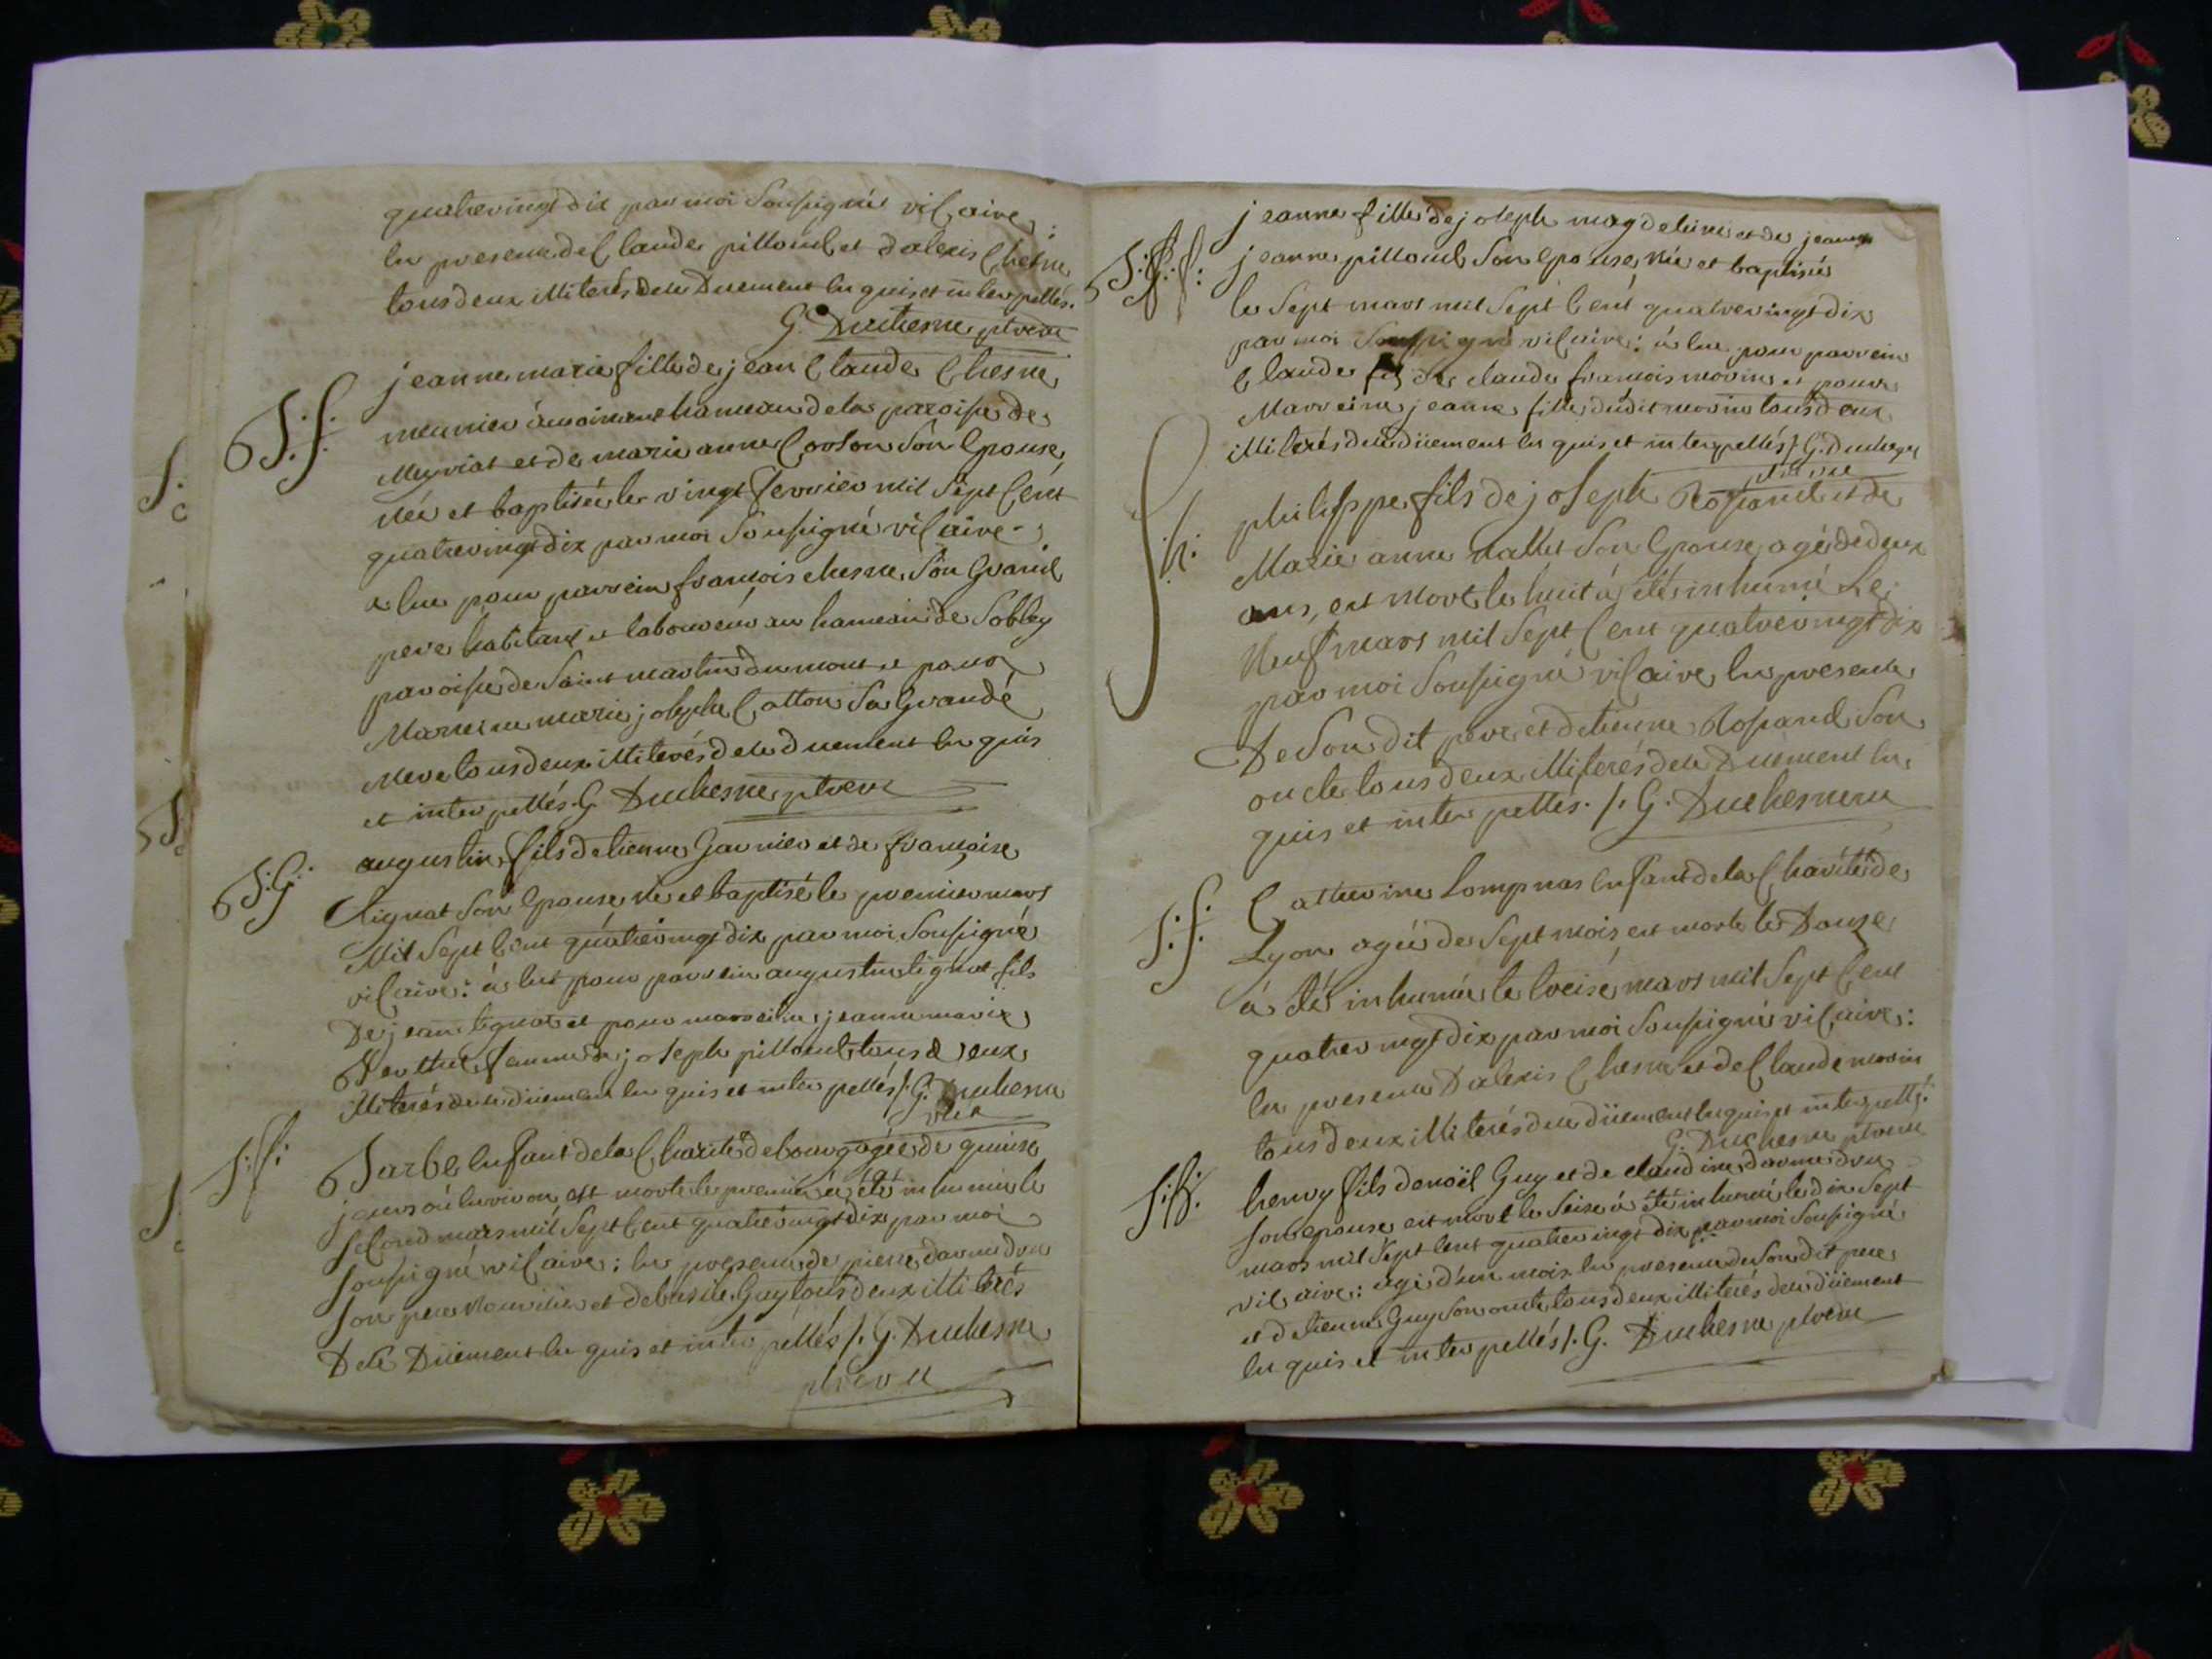 quatrevingt dix par moi Soussigné viCaire:
En presence de Claude pilloud et d'alexis Chesne
tous deux illiterés de ce Duement En quis et interpellés.
G. Duchesne ptre vre
B.f. jeanne marie fille de jean Claude Chesne
meunier hameau de la paroisse de
Meyriat et de marie anne Corson Son Epouse
née et baptisée le vingt fevrier mil Sept Cent
quatrevingt dix par moi Soussigné viCaire
a Eue pour parrein francois chesne Son Grand
pere habitant et laboureur au hameau de Soblay
paroisse de Saint martin du mont et pour
Marreine marie josephe Cotton Sa Grande
Mere tous deux illiterés de ce duement En quis
et interpellés. G. Duchesne ptre vre
B.G. augustin fils d'etienne Garnier et de francoise
tignat Son Epouse né et baptisé le premier mars
Mil Sept Cent quatrevingt dix par moi Soussigné
viCaire: à Eut pour parrein augustin tignat fils
De jean tignat et pour marreine jeanne marie
Berthet femme de joseph pilloud tous deux
illiterés de ce düement En quis et interpellés /. G. Duchesne
vre
S.f: Barbe Enfant de la Charité de bourg agée de quinse
jours où Environ est morte le premier à été inhumée le
seCond mars mil Sept Cent quatrevingt dix par moi
Soussigné viCaire: En presence de pierre darmedru
Son pere Nourricier et de basile Guy tous deux illiterés
De Ce Düement En quis et interpellés /. G. Duchesne
ptre vre
jeanne fille de joseph magdelaine et de jeanne
B.f. jeanne pilloud Son Epouse née et baptisée
le Sept mars mil Sept Cent quatrevingt dix
par moi Soussigné viCaire: à Eue pour parrein
Claude fils de claude francois morin et pour
Marreine jeanne fille dudit morin tous deux
illiterés de ce düement En quis et interpellés /. G. Duchesne
ptre vre
S.h. philippe fils de joseph Ropand et de
Marie anne nallet Son Epouse agé de deux
ans, est Mort le huit à été inhumé Le
Neuf mars mil Sept Cent quatrevingt dix
par moi Soussigné viCaire, En presence
De Son dit pere et d'etienne Ropand Son
oncle tous deux illiterés de ce Duement En
quis et interpellés. /. G. Duchesne vre
S.f. Catherine Lompnas Enfant de la Charité de
Lyon agée de Sept mois est morte le Douze
à été inhumée le treise mars mil Sept Cent
quatrevingt dix par moi Soussigné viCaire:
En presence D'alexis Chesne et de Claude morin
tous deux illiterés de ce düement En quis et interpellés.
G. Duchesne ptre vre
S.h. henry fils de noël Guy et de claudine darmedru
Son epouse est mort le Seise à été inhumé le dix Sept
mars mil Sept Cent quatrevingt dix par moi Soussigné
viCaire: agé d'un mois En presence de Son dit pere
et d'etienne Guy Son oncle tous deux illiterés de ce düement
En quis et interpellés /. G. Duchesne ptre vre